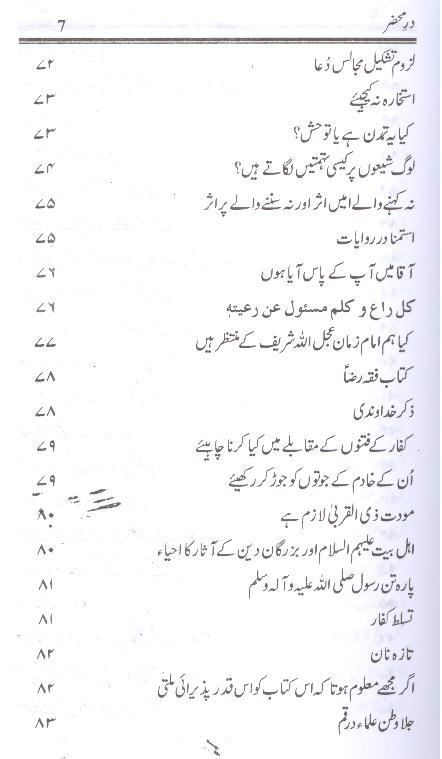 درِ محضر 7
لزوم تشکیل مجالس دُعا ۷۲
استخارہ نہ کیجیئے ۷۳
کیا یہ تمدن ہے یا توحش؟ ۷۳
لوگ شیعوں پر کیسی تہمتیں لگاتے ہیں؟ ۷۴
نہ کہنے والے میں اثر اور نہ سننے والے پر اثر ۷۵
استمنا در روایات ۷۵
آقا میں آپ کے پاس آیا ہوں ۷۶
کل راع و کلم مسئول عن رعیتہ ۷۶
کیا ہم امام زمان عجل اللہ شریف کے منتظر ہیں ۷۷
کتاب فقہ رضاؑ ۷۸
ذکر خداوندی ۷۸
کفار کے فتنوں کے مقابلے میں کیا کرنا چاہیئے ۷۹
اُن کے خادم کے جوتوں کو جوڑ کر رکھیئے ۷۹
مودت ذی القربیٰ لازم ہے ۸۰
اہل بیت علیہم السلام اور بزرگان دین کے آثار کا احیاء ۸۰
پارہ تن رسول صلی اللہ علیہ و آلہ وسلم ۸۱
تسلط کفار ۸۱
تازہ نان ۸۲
اگر مجھے معلوم ہوتا کہ اس کتاب کو اس قدر پذیرائی ملتی ۸۲
جلا وطن علماء در قم ۸۳